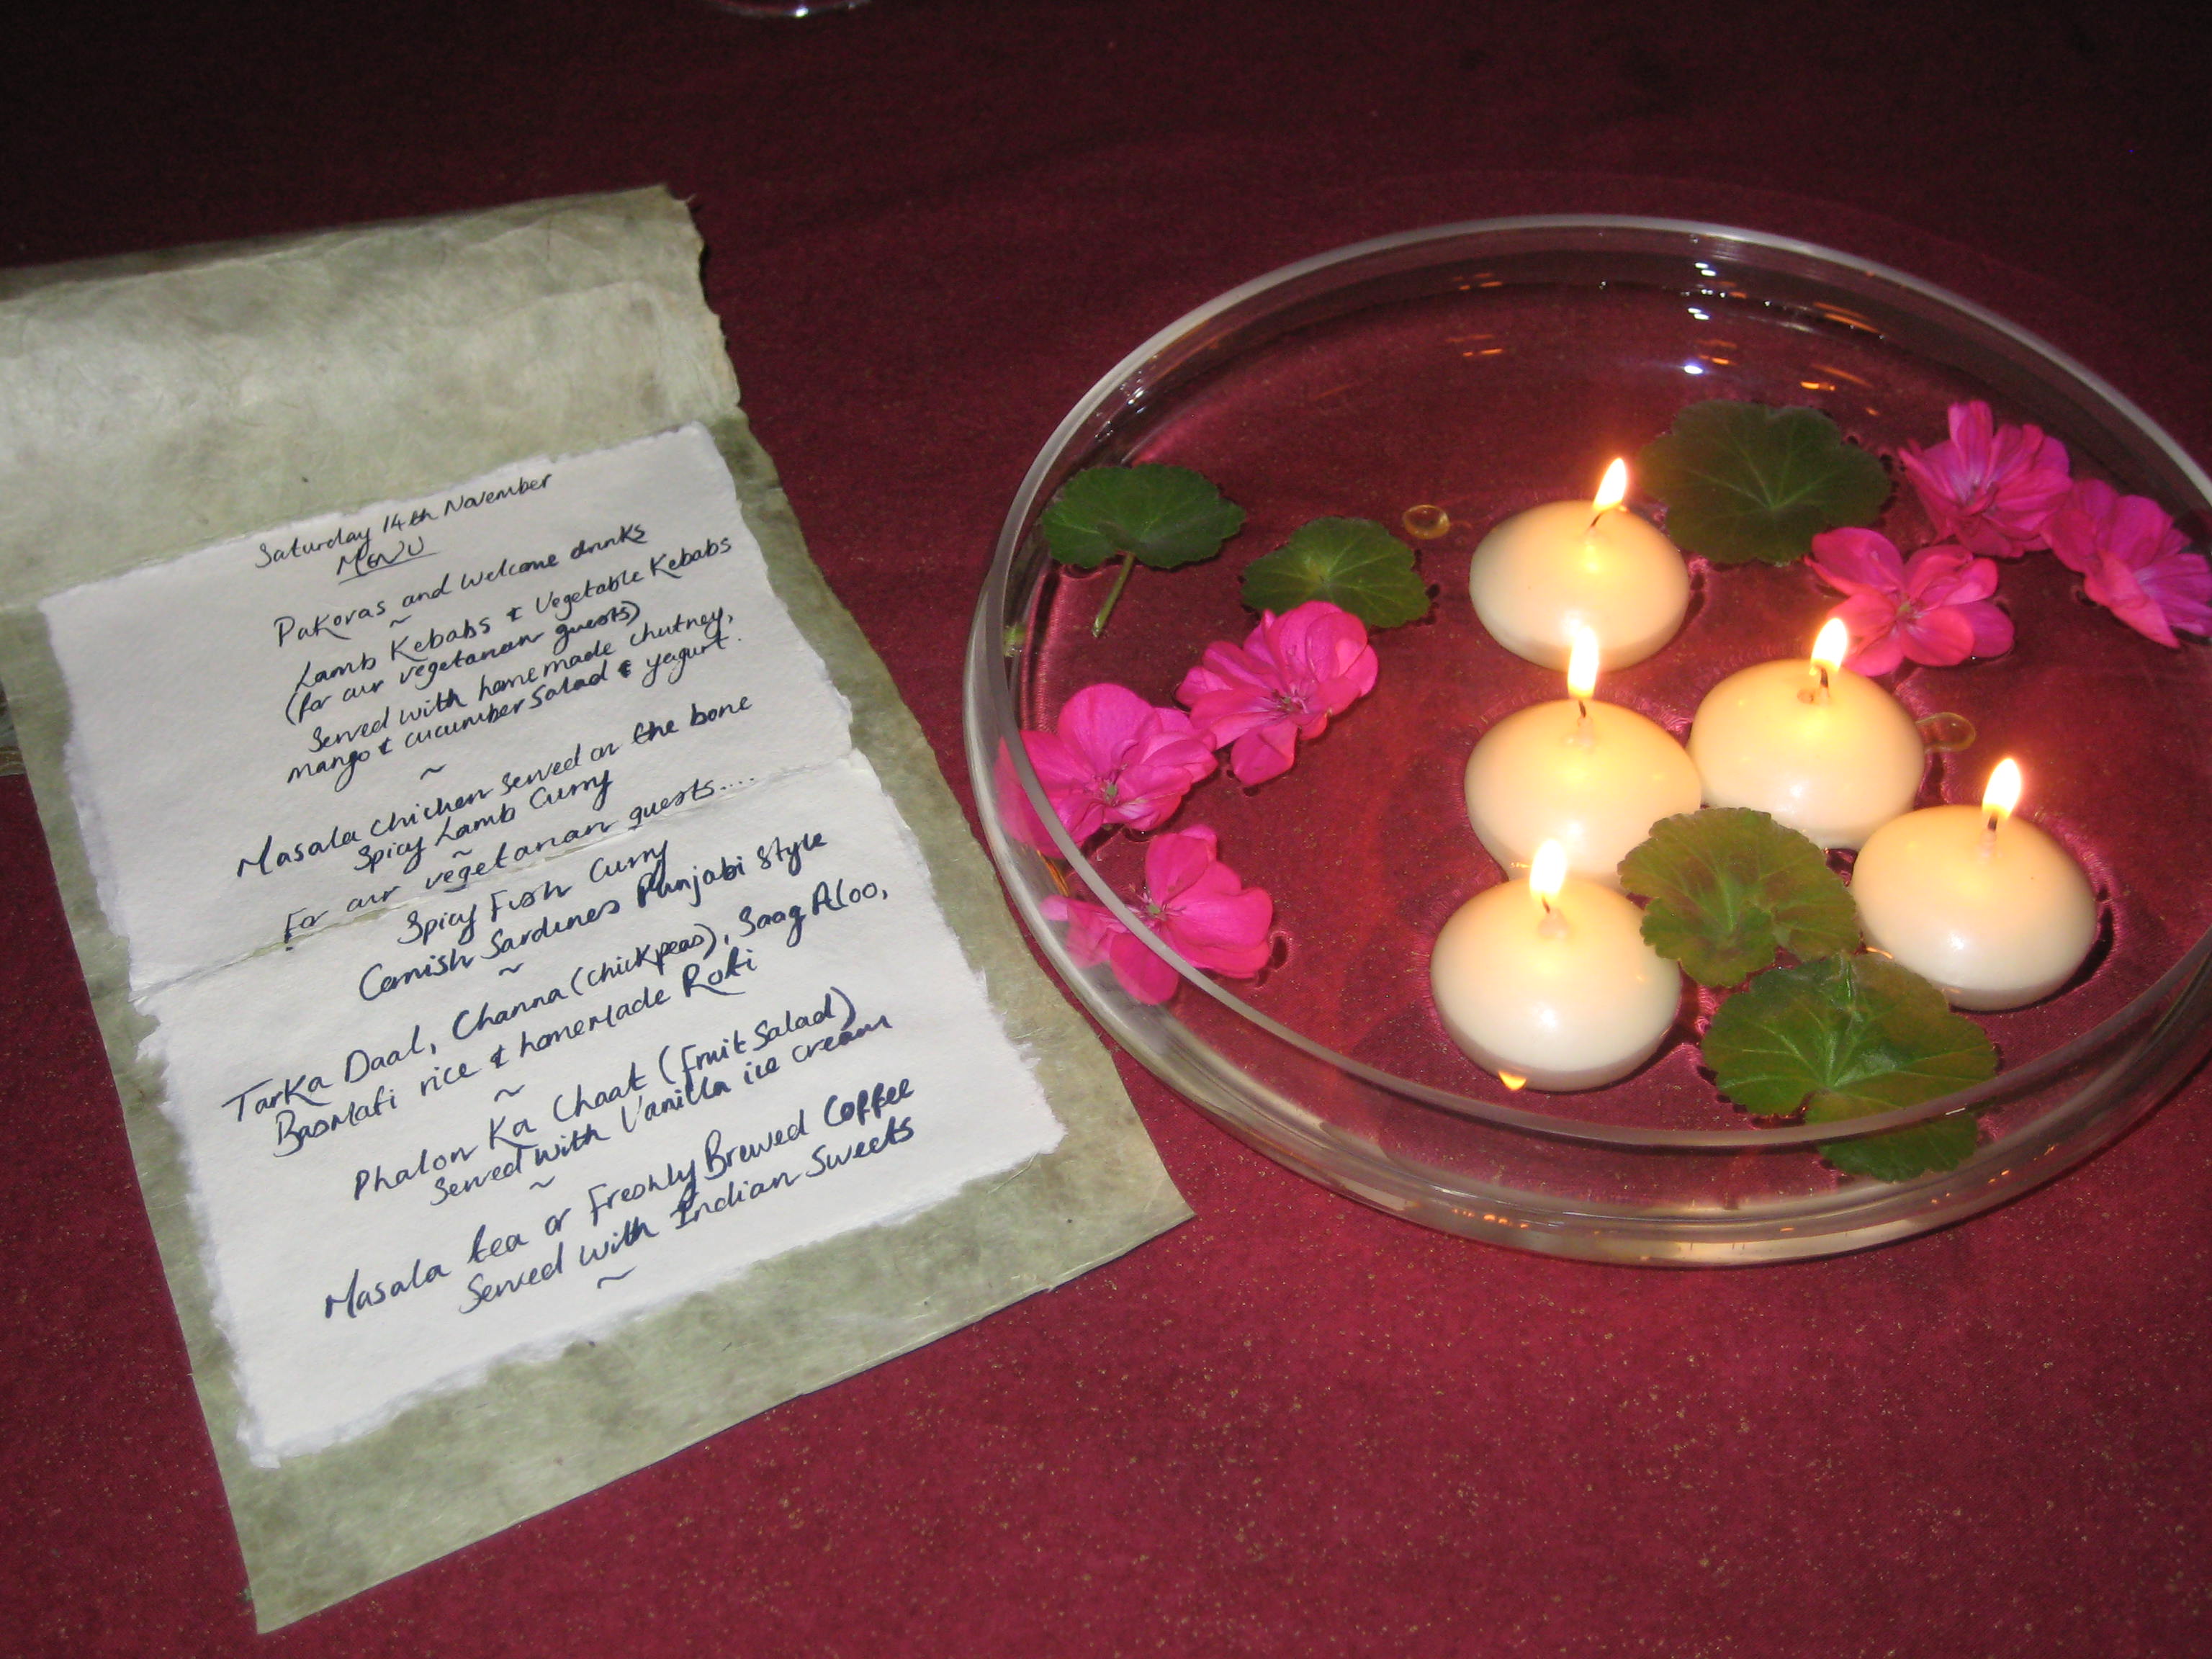 Saturday 14th November
MENU
Pakoras and welcome drinks
~
Lamb Kebabs & Vegetable Kebabs
(for our vegetarian guests)
Served with homemade chutney,
mango & cucumber Salad & yagurt.
~
Masala chicken Served on the bone
Spicy Lamb Curry
~
For our vegetarian guests....
Spicy Fish Curry
Cornish Sardines Punjabi Style
~
Tarka Daal, Channa (chickpeas), Saag Aloo,
Basmati rice & homemade Roti
~
Phalon Ka Chaat (fruit Salad)
Served with Vanilla ice cream
~
Masala tea or Freshly Brewed Coffee
Served with Indian Sweets
~